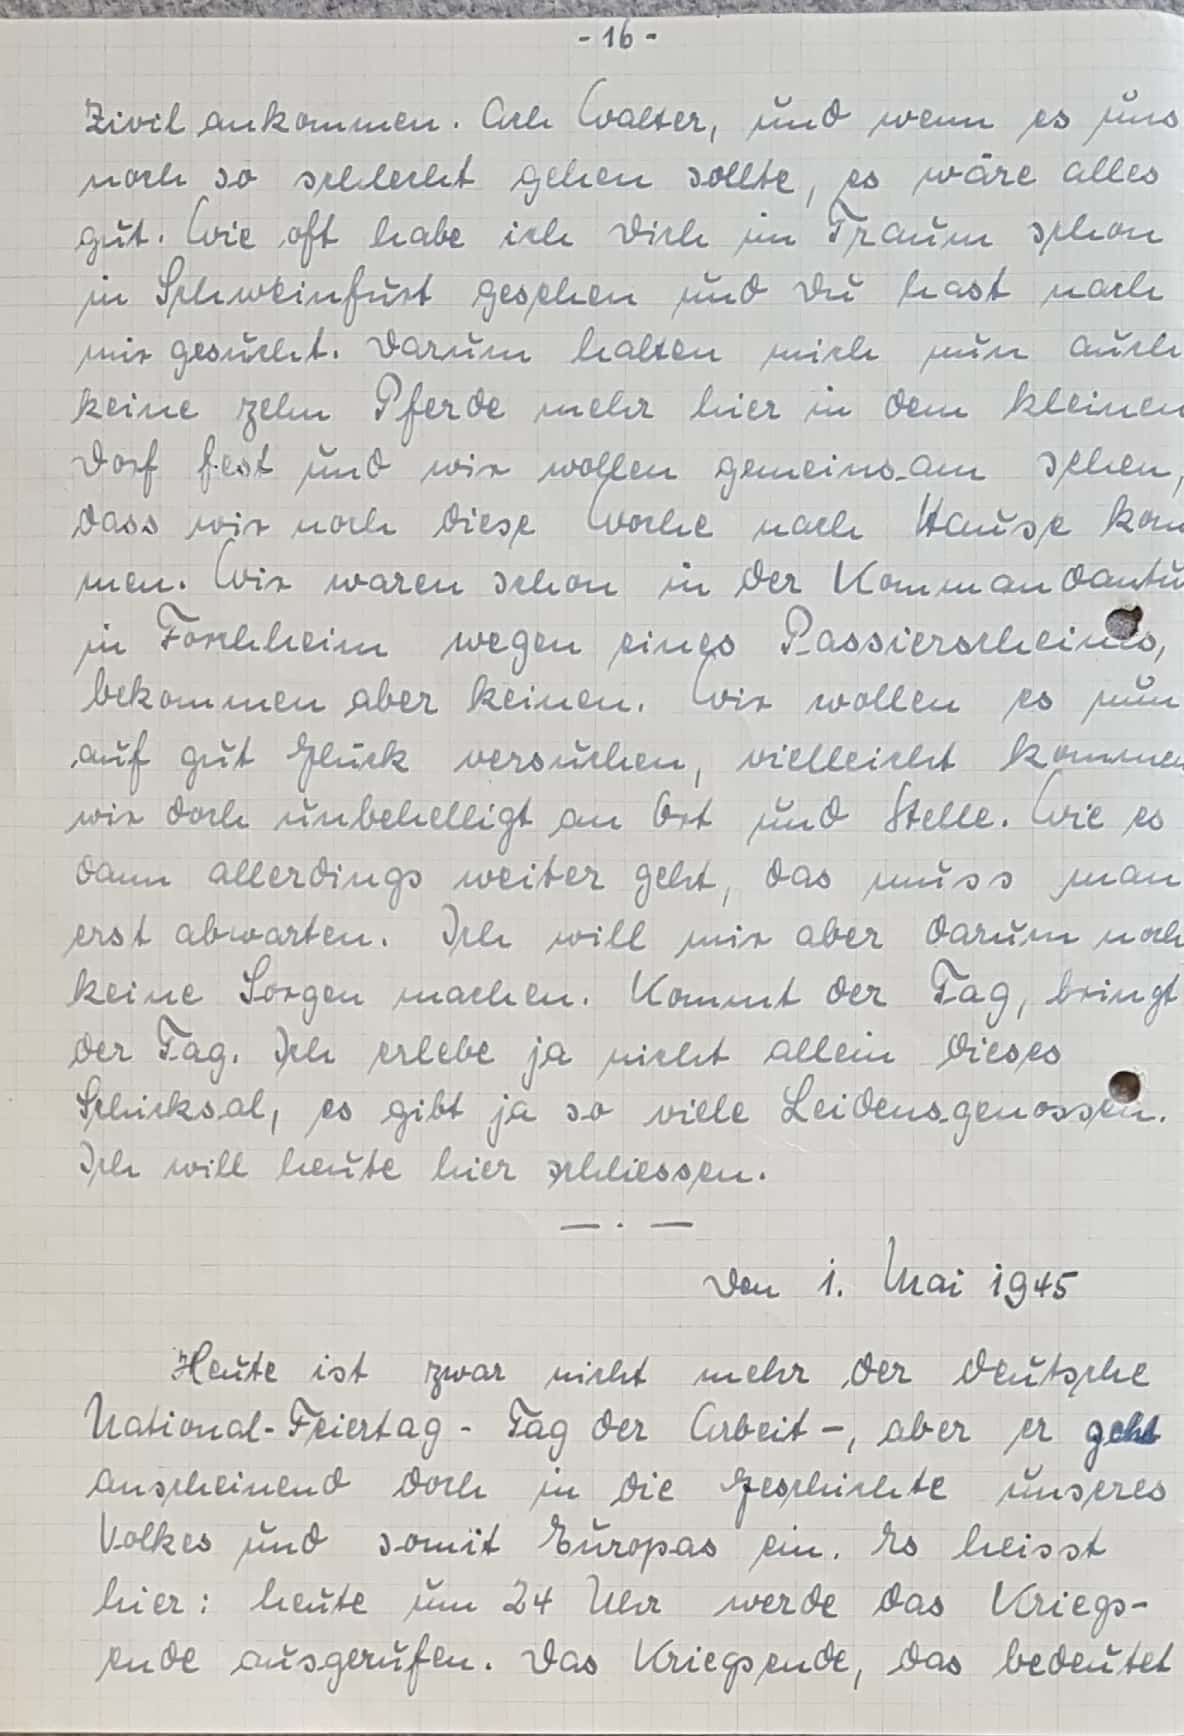 - 16 -
Zivil ankommen. Ach Walter, und wenn es uns
noch so schlecht gehen sollte, es wäre alles
gut. Wie oft habe ich Dich im Traum schon
in Schweinfurt gesehen und Du hast nach
mir gesucht. Darum halten mich nun auch
keine zehn Pferde mehr hier in dem kleinen
Dorf fest und wir wollen gemeinsam sehen,
dass wir noch diese Woche nach Hause kom
men. Wir waren schon in der Kommandantu
in Forchheim wegen eines Passierscheines,
bekommen aber keinen. Wir wollen es nun
auf gut Glück versuchen, vielleicht kommen
wir doch unbehelligt an Ort und Stelle. Wie es
dann allerdings weiter geht, das muss man
erst abwarten. Ich will mir aber darum noch
keine Sorgen machen. Kommt der Tag, bringt
der Tag. Ich erlebe ja nicht allein dieses
Schicksal, es gibt ja so viele Leidensgenossen.
Ich will heute hier schliessen.
— . —
Den 1. Mai 1945
Heute ist zwar nicht mehr der Deutsche
National-Feiertag - Tag der Arbeit -, aber er geht
anscheinend doch in die Geschichte unseres
Volkes und somit Europas ein. Es heisst
hier: heute um 24 Uhr werde das Kriegs-
ende ausgerufen. Das Kriegsende, das bedeutet